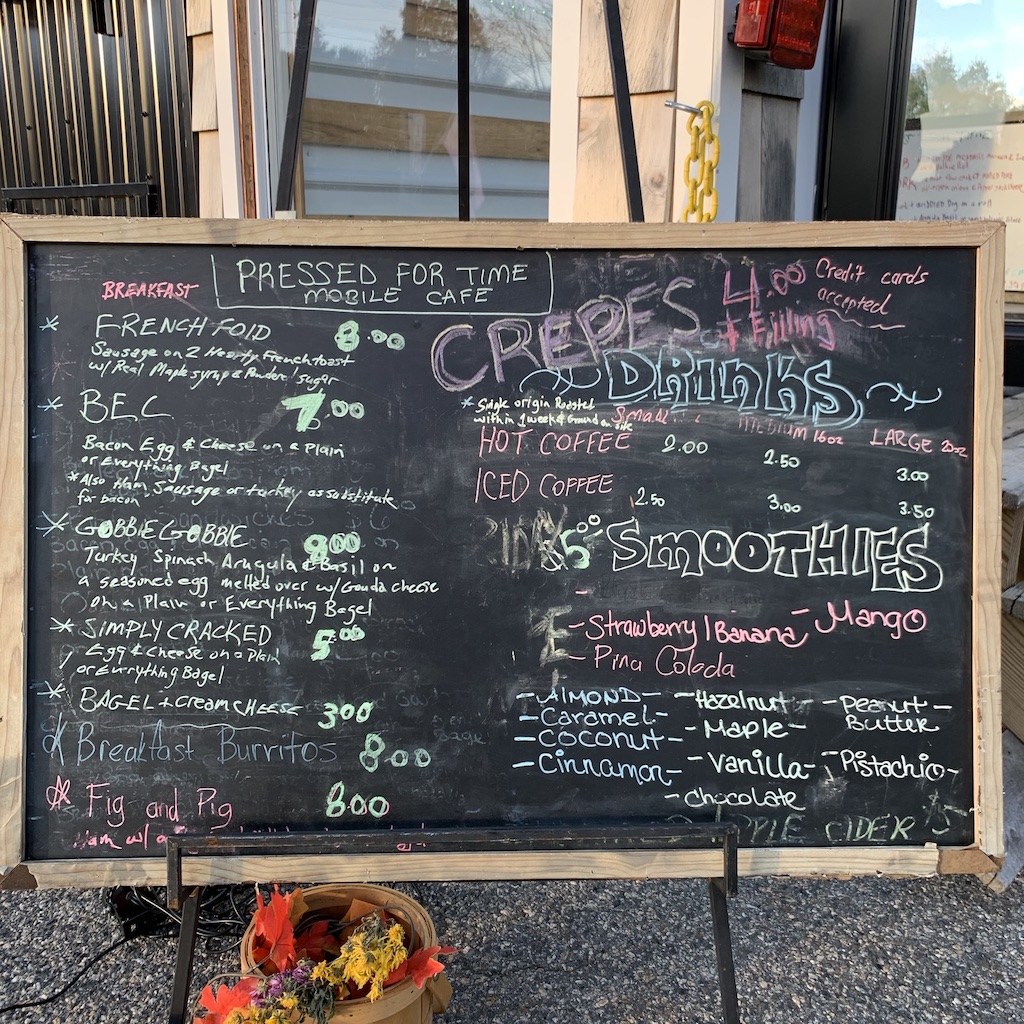 PRESSED FOR TIME
MOBILE CAFE
BREAKFAST
* FRENCH FOLD 8.00
Sausage on 2 Hearty Frenchtoast
w/ Real Maple syrup & Powdered sugar
* B.E.C. 7.00
Bacon Egg & Cheese on a Plain
or Everything Bagel
* Also Ham Sausage or turkey as substitute
for bacon
* GOBBLE GOBBLE 9.00
Turkey Spinach Arugula & Basil on
a seasoned egg melted over w/ Gouda cheese
on a Plain or Everything Bagel
* SIMPLY CRACKED 5.00
Egg & Cheese on a Plain
or Everything Bagel
* BAGEL + CREAM CHEESE 3.00
* Breakfast Burritos 8.00
* Fig and Pig 8.00
Ham w/
CREPES 4.00
+ Filling
Credit cards
accepted
DRINKS
* Single origin Roasted
within 1 week & Ground on site
Small MEDIUM 16oz LARGE 20oz
HOT COFFEE 2.00 2.50 3.00
ICED COFFEE 2.50 3.00 3.50
5.00 SMOOTHIES
- Strawberry / Banana - Mango
- Pina Colada
- ALMOND - - Hazelnut - - Peanut -
Butter
- Caramel - - Maple -
- Coconut -
- Cinnamon - - Vanilla - - Pistachio -
- Chocolate
APPLE CIDER